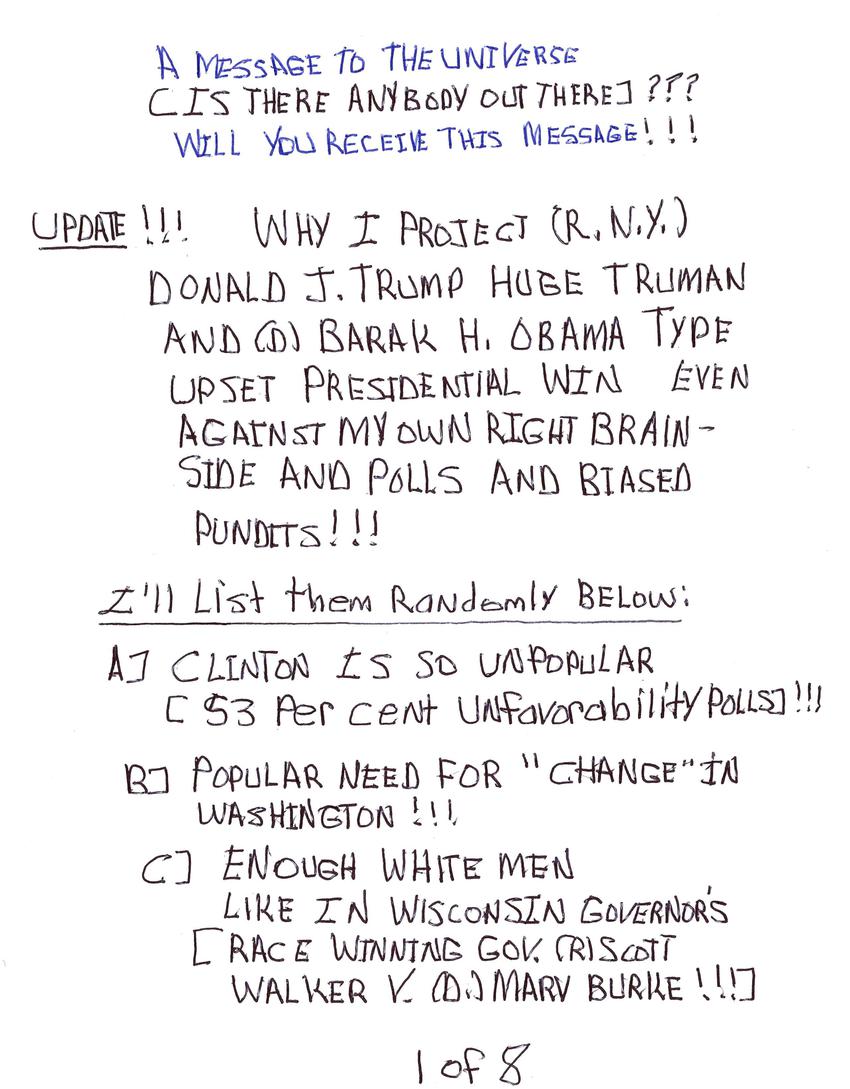 A MESSAGE TO THE UNIVERSE
[IS THERE ANYBODY OUT THERE] ???
WILL YOU RECEIVE THIS MESSAGE!!!
UPDATE!!! WHY I PROJECT (R. N.Y.)
DONALD J. TRUMP HUGE TRUMAN
AND (D) BARAK H. OBAMA TYPE
UPSET PRESIDENTIAL WIN EVEN
AGAINST MY OWN RIGHT BRAIN-
SIDE AND POLLS AND BIASED
PUNDITS!!!
I'll List them Randomly BELOW:
A] CLINTON IS SO UNPOPULAR
[53 Per cent UNfavorability POLLS]!!!
B] POPULAR NEED FOR "CHANGE" IN
WASHINGTON!!!
C] ENOUGH WHITE MEN
LIKE IN WISCONSIN GOVERNOR'S
[RACE WINNING GOV. (R) SCOTT
WALKER V. (D.) MARV BURKE!!!]
1 of 8